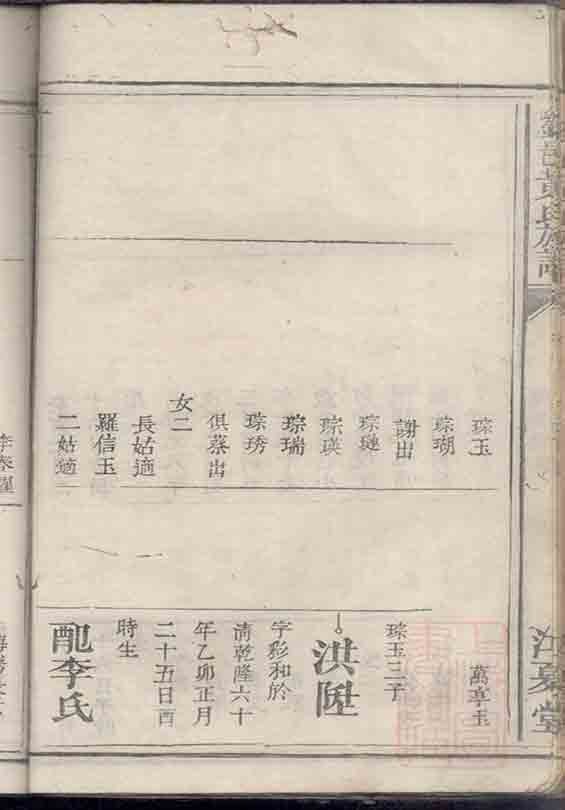 邑黃氏族譜
江夏堂
琮玉
琮瑚
謝出
琮璉
琮瑛
琮瑞
琮琇
俱蔡出
女二
長姑適
羅信玉
二姑適
萬享玉
琮玉三子
洪陞
字彩和於
清乾隆六十
年乙卯正月
二十五日酉
時生
配李氏